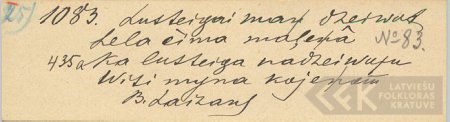 25)
1083. Lusteigai man dzeiwot
Lela cīma maleņâ
№83.
435a Ka lusteiga nadzeiwuju
Wisi myna kojeņom
B. Laizans
LFK LATVIEŠU
FOLKLORAS
KRATUVE